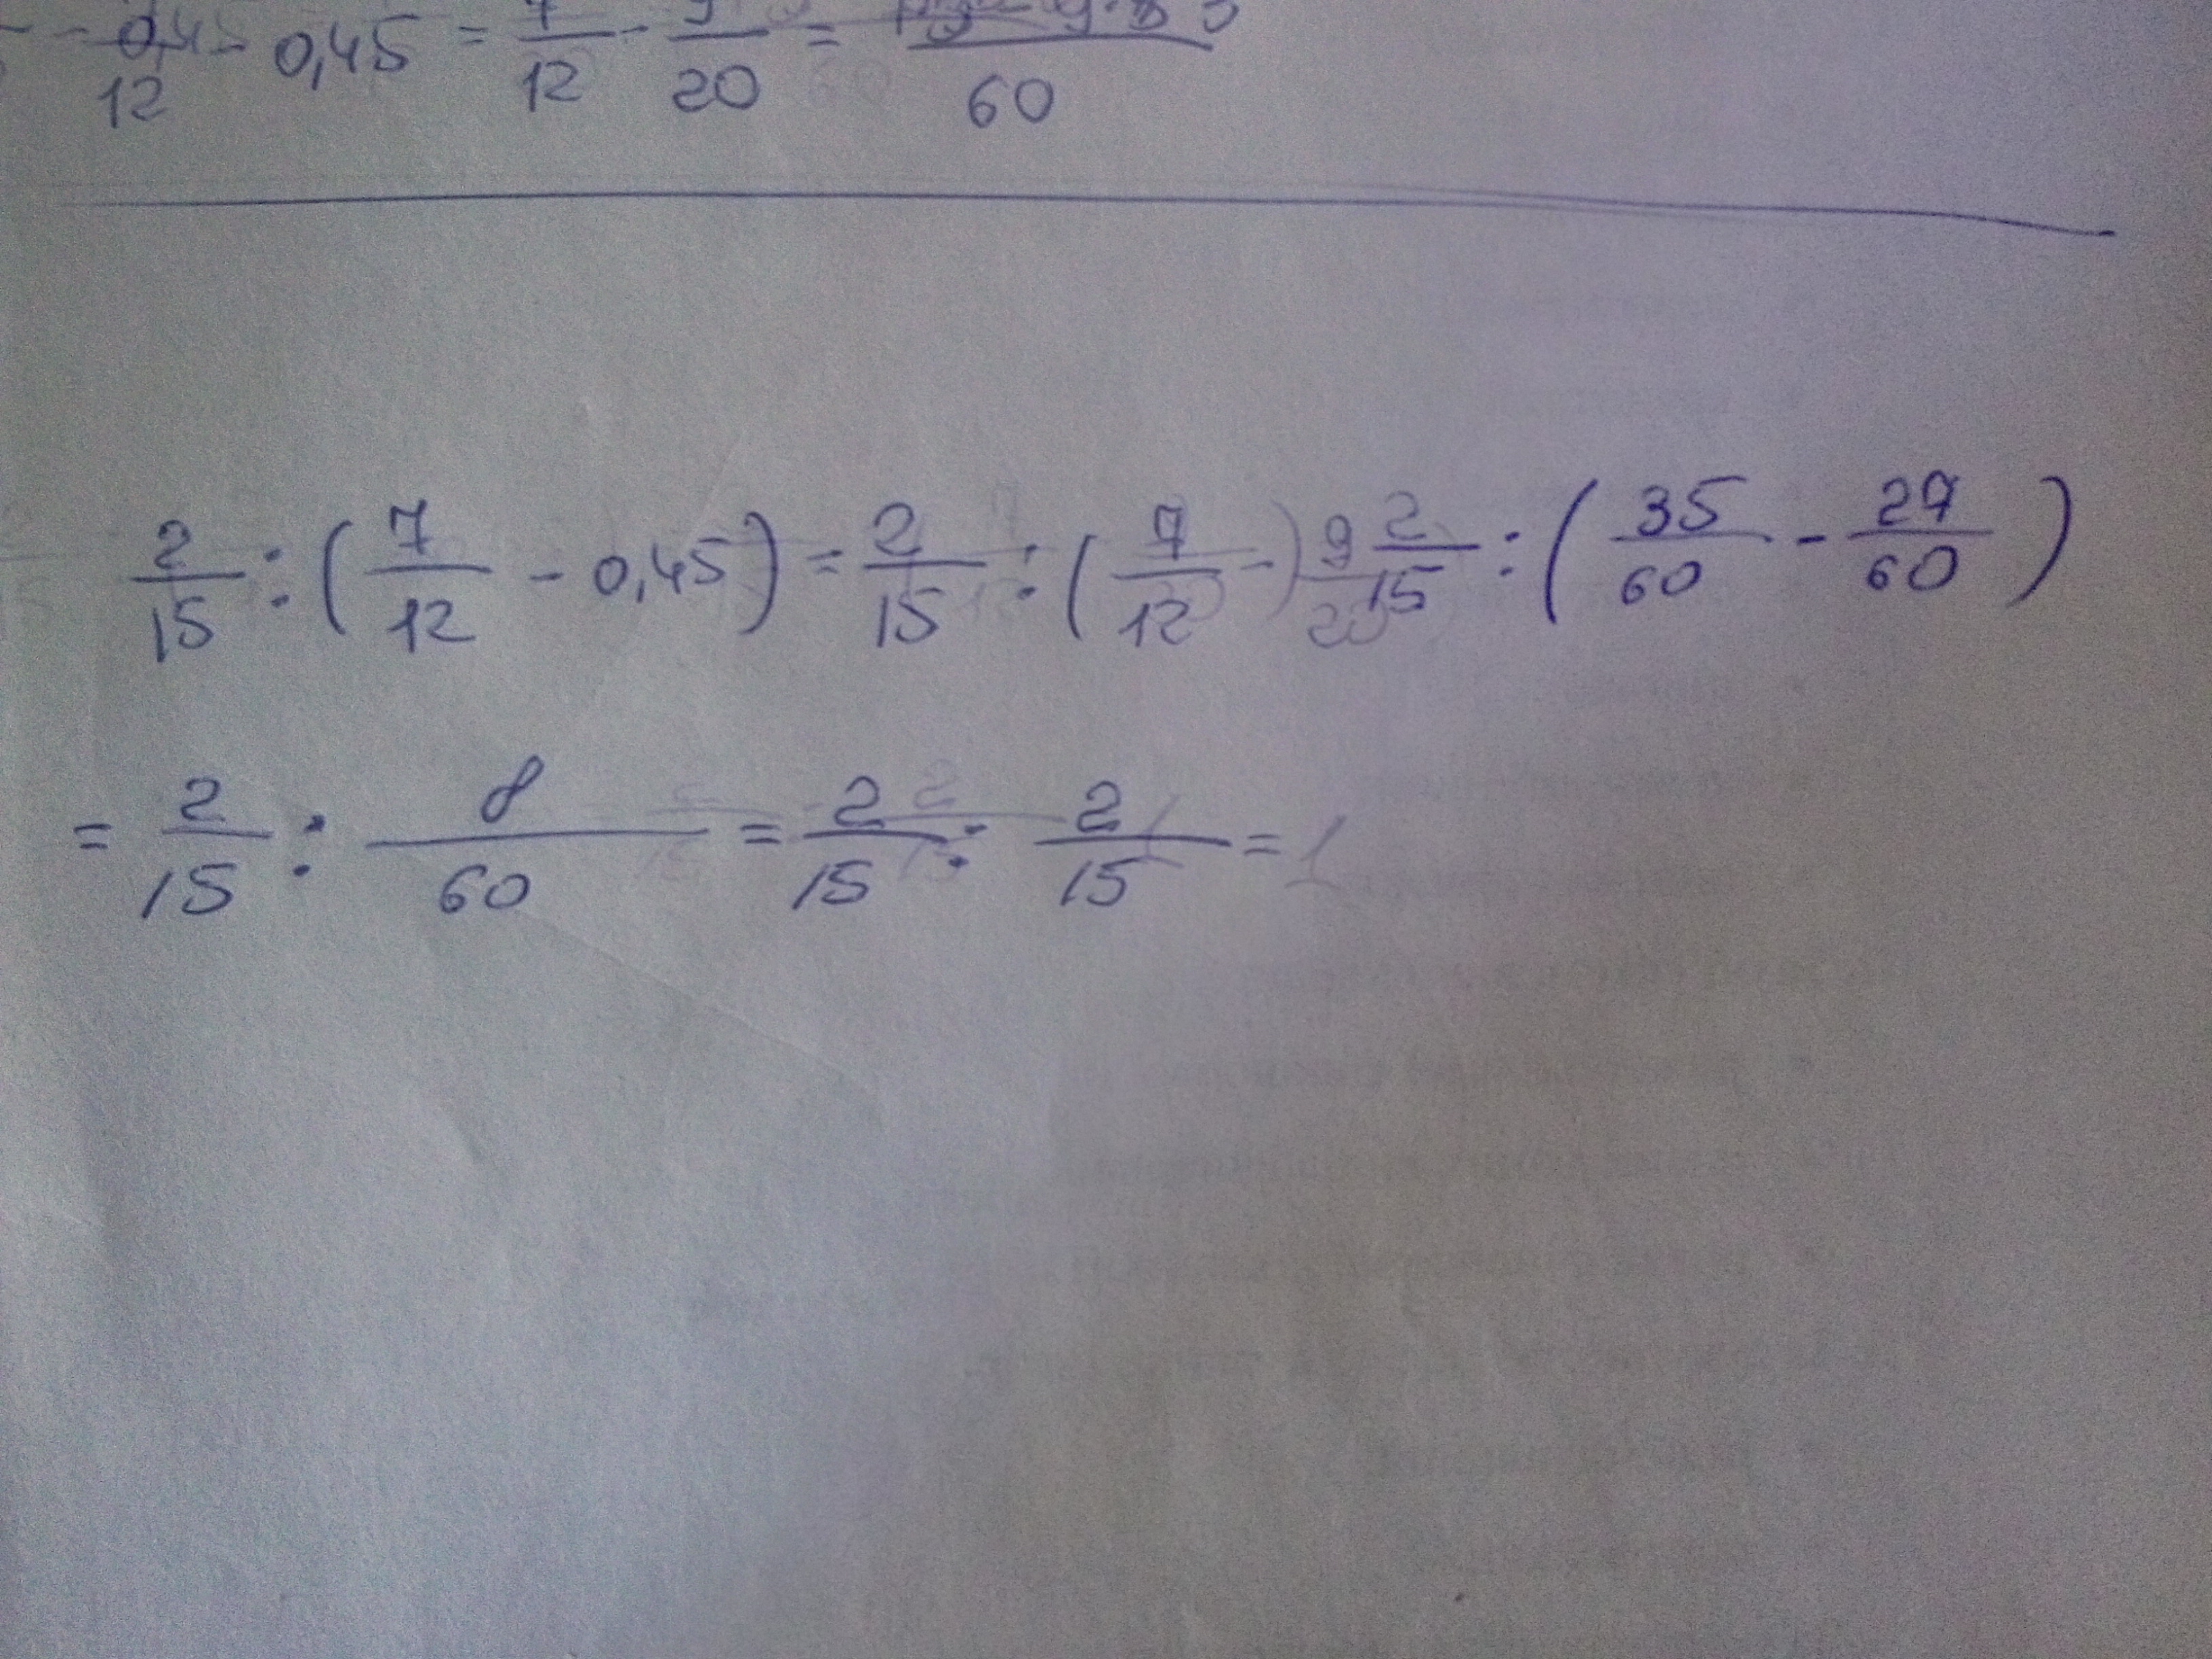 12 - 0,45 = 7/12 - 9/20 = /60
2/15 : (7/12 - 0,45) = 2/15 : (7/12 - ) 9/20 2/15 : (35/60 - 27/60)
= 2/15 : 8/60 = 2/15 : 2/15 = 1